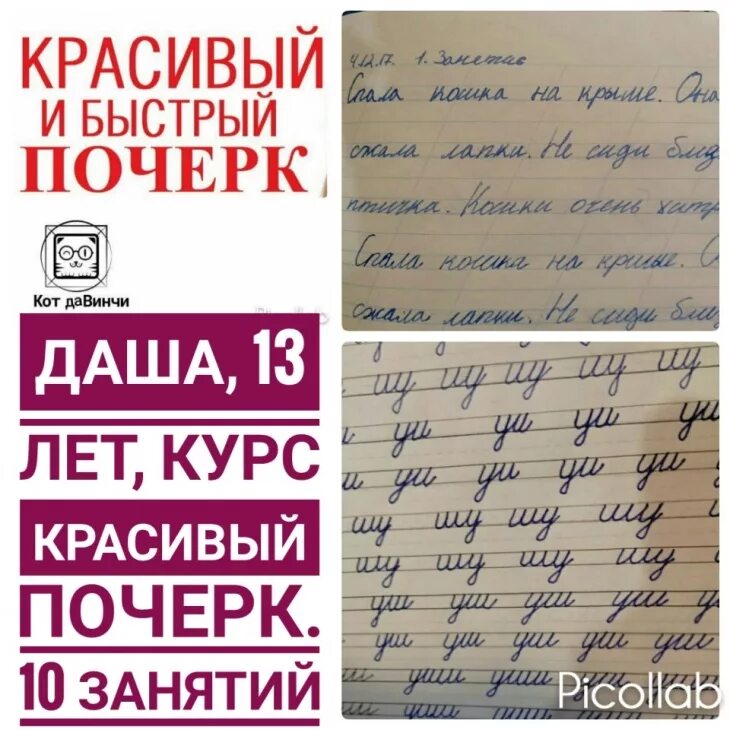 КРАСИВЫЙ
И БЫСТРЫЙ
ПОЧЕРК
Кот даВинчи
ДАША, 13
ЛЕТ, КУРС
КРАСИВЫЙ
ПОЧЕРК.
10 ЗАНЯТИЙ
4.12.17. 1. Занятие
Спала кошка на крыше. Она
сжала лапки. Не сиди близ
птичка. Кошки очень хитр
Спала кошка на крыше. О
сжала лапки. Не сиди близ
шу шу шу шу шу
уш уш уш
уш уш уш уш
шу шу шу шу
шу шу шу шу
уш уш уш уш уш
уш уш уш уш уш
уш уш уш
уш уш
Picollab